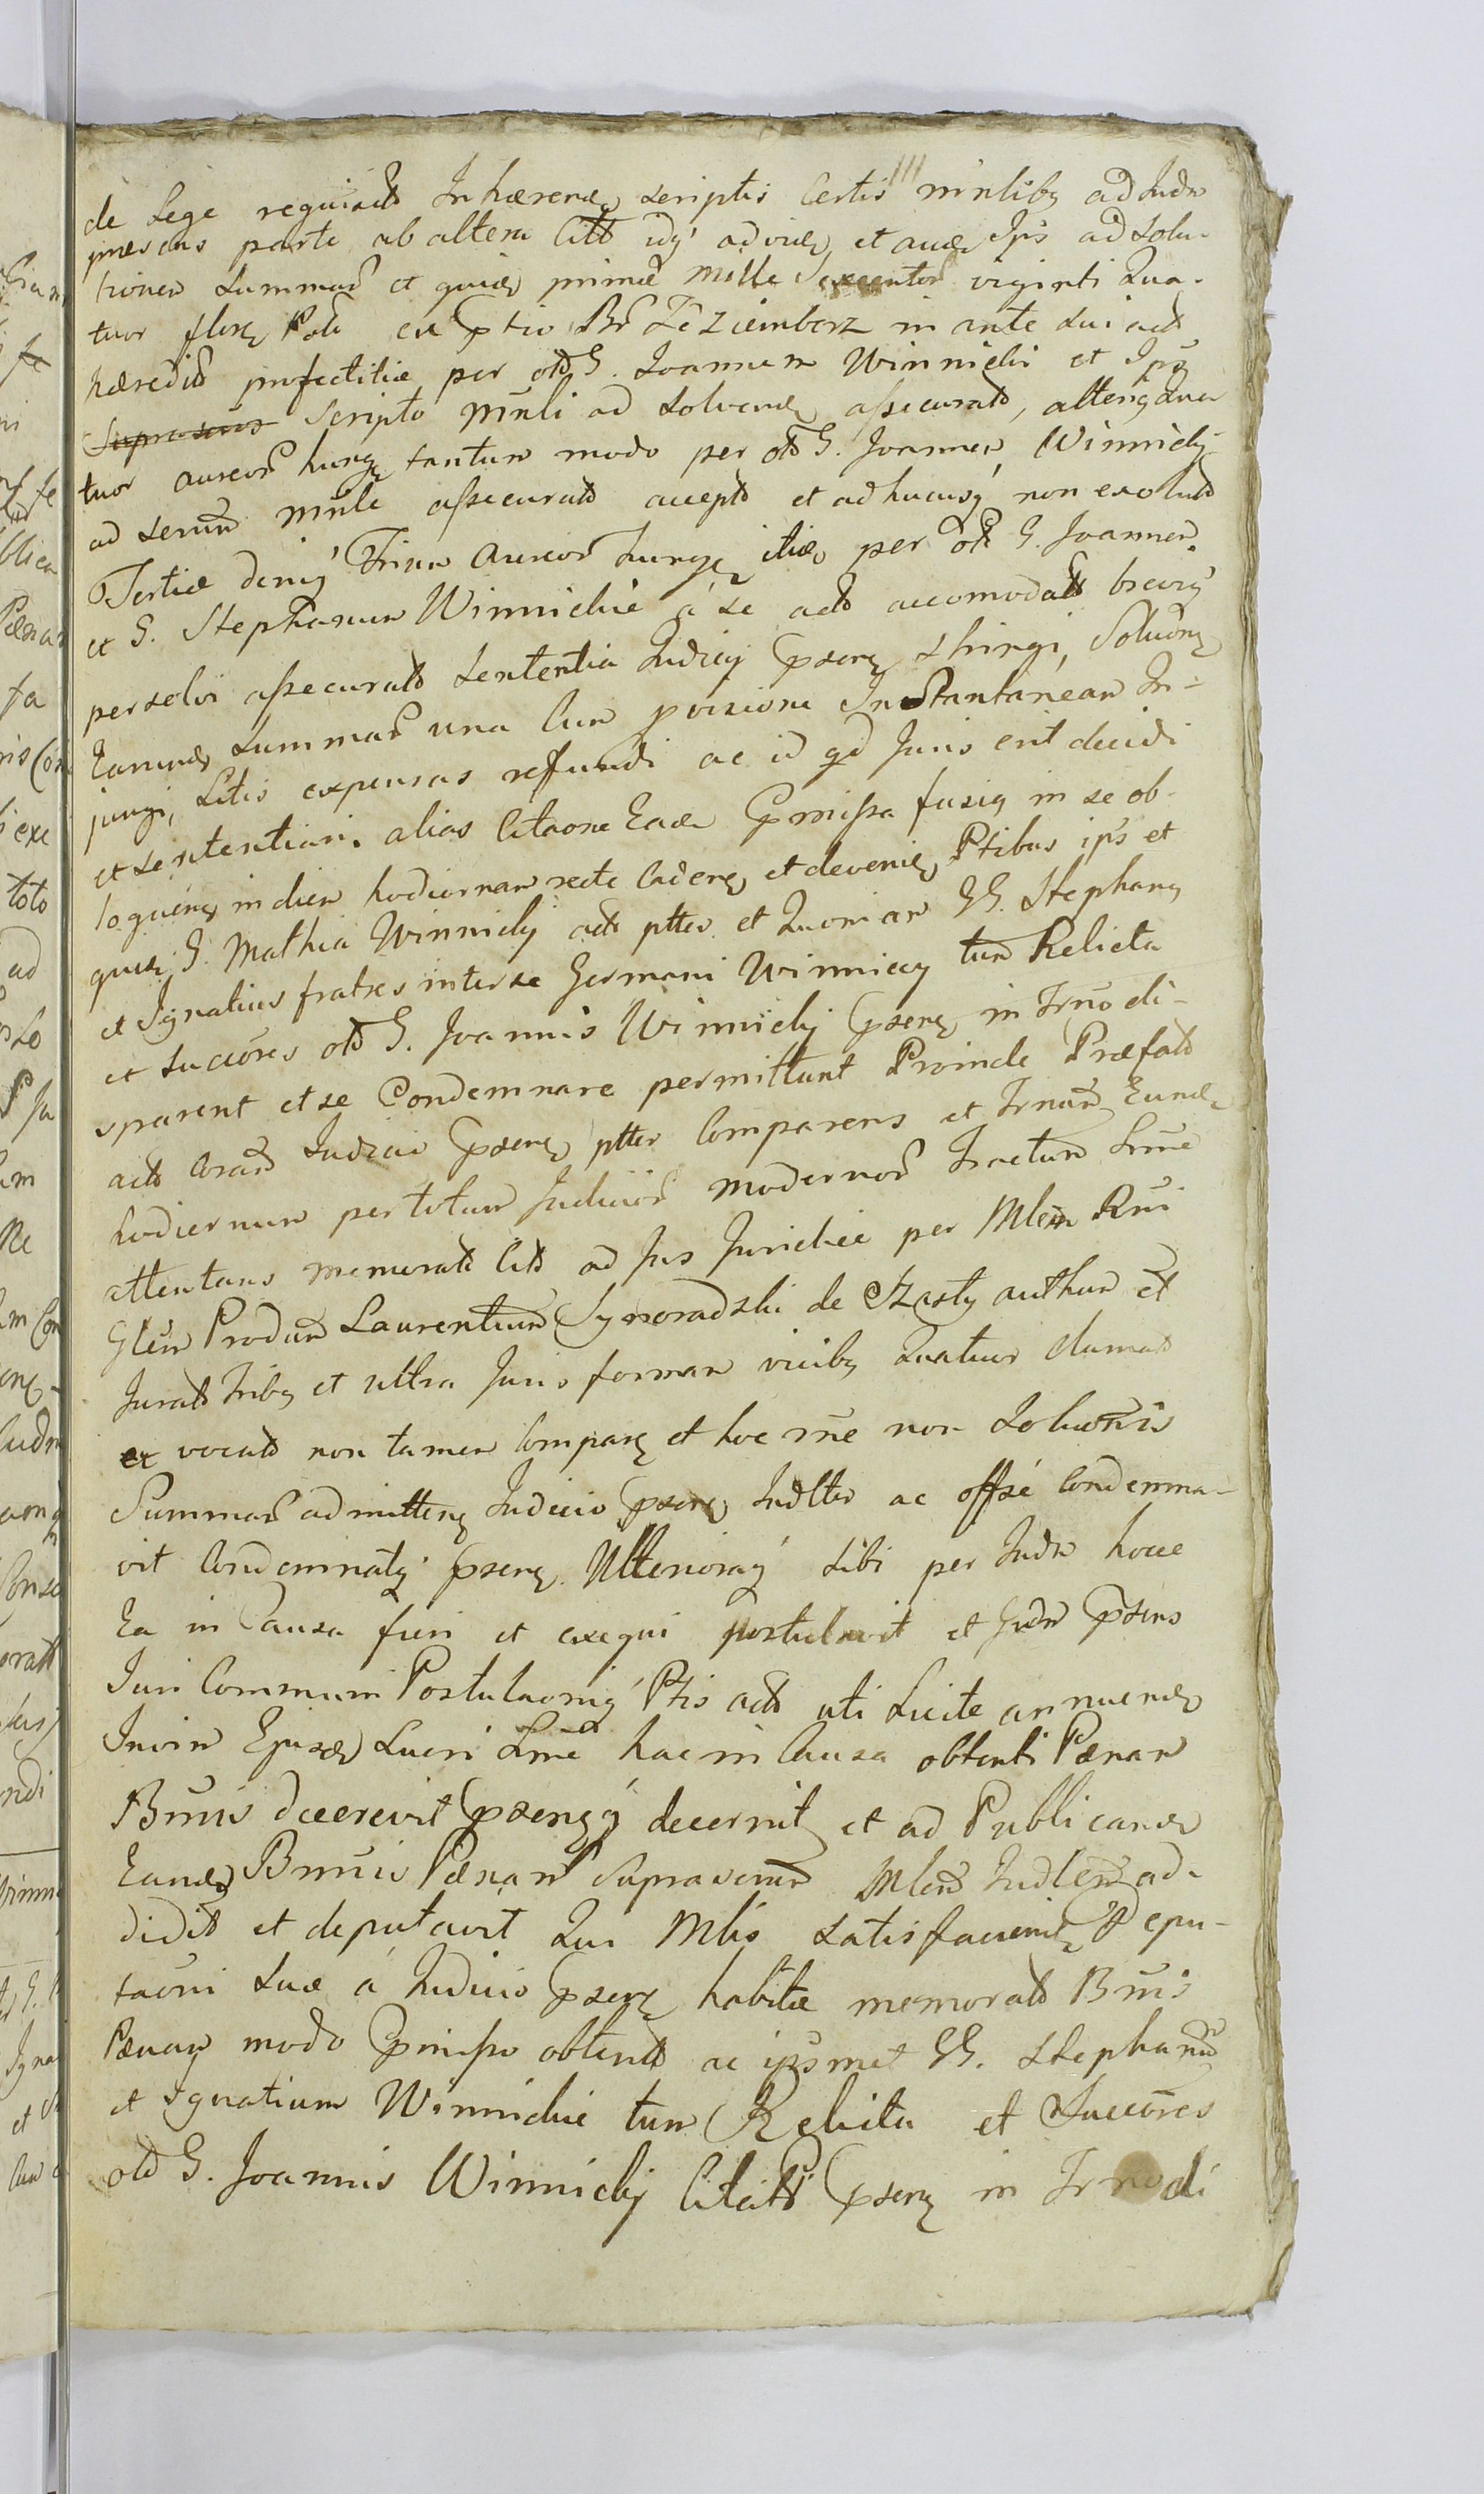 de Lege requisit Inhærend scriptis Certis mnlibq ad Judm
præsens parte ab altera Citt idq ad vice et Ips ad Solu-
tionem Summar et quid primæ Mille Sexcentor viginti Qua-
tuor flor Pol Br Zeziemborz in ante sui act
hæredit profectitiæ per otd G. Joannem Winnicki et Ips
Suprascris Scripto mnli ad Solvend assecurat, altera Qua
tuor aureor hung tantum modo per otd G. Joannem Winnicky
ad serium mnle assecurat accept et adhucusq non exolut
Tertiæ deniq Trium Aureor hung itid per otd G. Joannem
et G. Stephanum Winnickie á se act accomodat brevig
persolvi assecurat Sententia Judicy psenz stringi, Solutionq
Earund Summar una Cum pvisione Instantanean In-
jungi, Litis expensas refundi ac id qd Juris erit decidi
et sententiari. alias Citaone Eade pmissa fusiq in se ob-
loquenq in diem hodiernam recte Caden et devenie Ptibus ips et
quid G. Mathia Winnicky act ptter et Quoniam GG. Stephany
et Ignatius fratres inter se Germani Winniccy tum Relicta
et Succőres otd G. Joannis Winnicky psenz in Trno di-
sparent et se Condemnare permittunt Proinde Præfatt
act Coram Judicio psenz ptter Comparens et Trnum Eund
hodiernum per totum Judicior modernor Tractum Lrme
attentans memorat Citt ad Jus Juridice per Mlem Rni
Glem Produm Laurentium Synoradzki de Szasty authum et
Jurat Tribq et ultra Juris formam vicibq Quatuor clamat
ex vocat non tamen Comparz et hoc rne non Solutionis
Summar admittenz Judicio psenz Judlter ac offse Condemna-
vit Condemnatq psenz. Ulteriorq Sibi per Judm hocce
Ea in Causa fieri et exequi postulavit et Judm psens
Juri Communi Postulaoniq Ptis act uti Licite annuend
Juvin Epised Lucri Lrme hac in Causa obtenti Pænam
Bnnis decrevit psenzq decernit et ad Publicand
Eand Bnnis Pænam Suprascrium Mlem Judlem ad-
didit et deputavit Qui Mlis Satisfaciend Depu-
taoni Suæ á Judicio psenz habitæ memorat Bnis
Pænam modo pmisso obtent ac ipsmet GG. Stephanum
et Ignatium Winnickie tum Relicta et Succőres
otd G. Joannis Winnicky Citatt psenz in Trno di